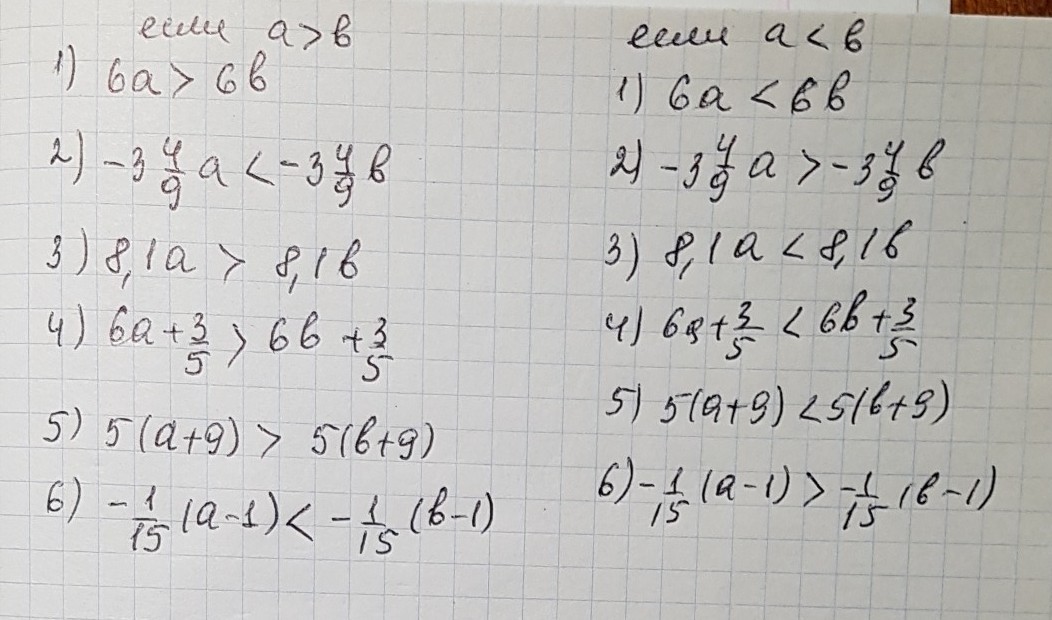 если a > в
1) 6a > 6в
2) -3 4/9 a < -3 4/9 в
3) 8,1a > 8,1в
4) 6a + 3/5 > 6в + 3/5
5) 5(a+9) > 5(в+9)
6) -1/15 (a-1) < -1/15 (в-1)
если a < в
1) 6a < 6в
2) -3 4/9 a > -3 4/9 в
3) 8,1a < 8,1в
4) 6a + 3/5 < 6в + 3/5
5) 5(a+9) < 5(в+9)
6) -1/15 (a-1) > -1/15 (в-1)